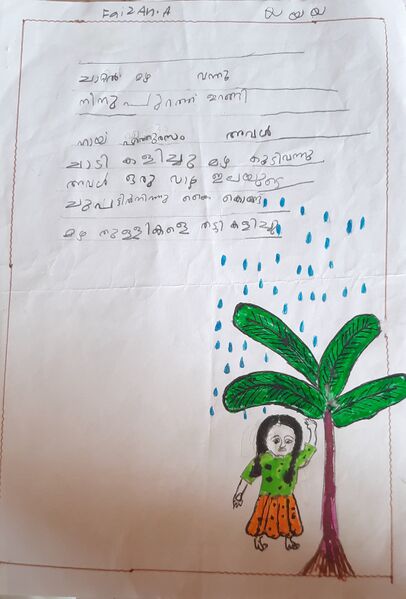 FaizAn.A
ചാറൽ മഴ വന്നു
മിന്നു പുറത്ത് ഇറങ്ങി
ഹായ് എന്തുരസം അവൾ
ചാടി കളിച്ചു മഴ കൂടിവന്നു
അവൾ ഒരു വാഴ ഇലയുടെ
ചുവട്ടിൽനിന്നു കൈ കൊണ്ടു
മഴ തുള്ളികളെ തട്ടി കളിച്ചു